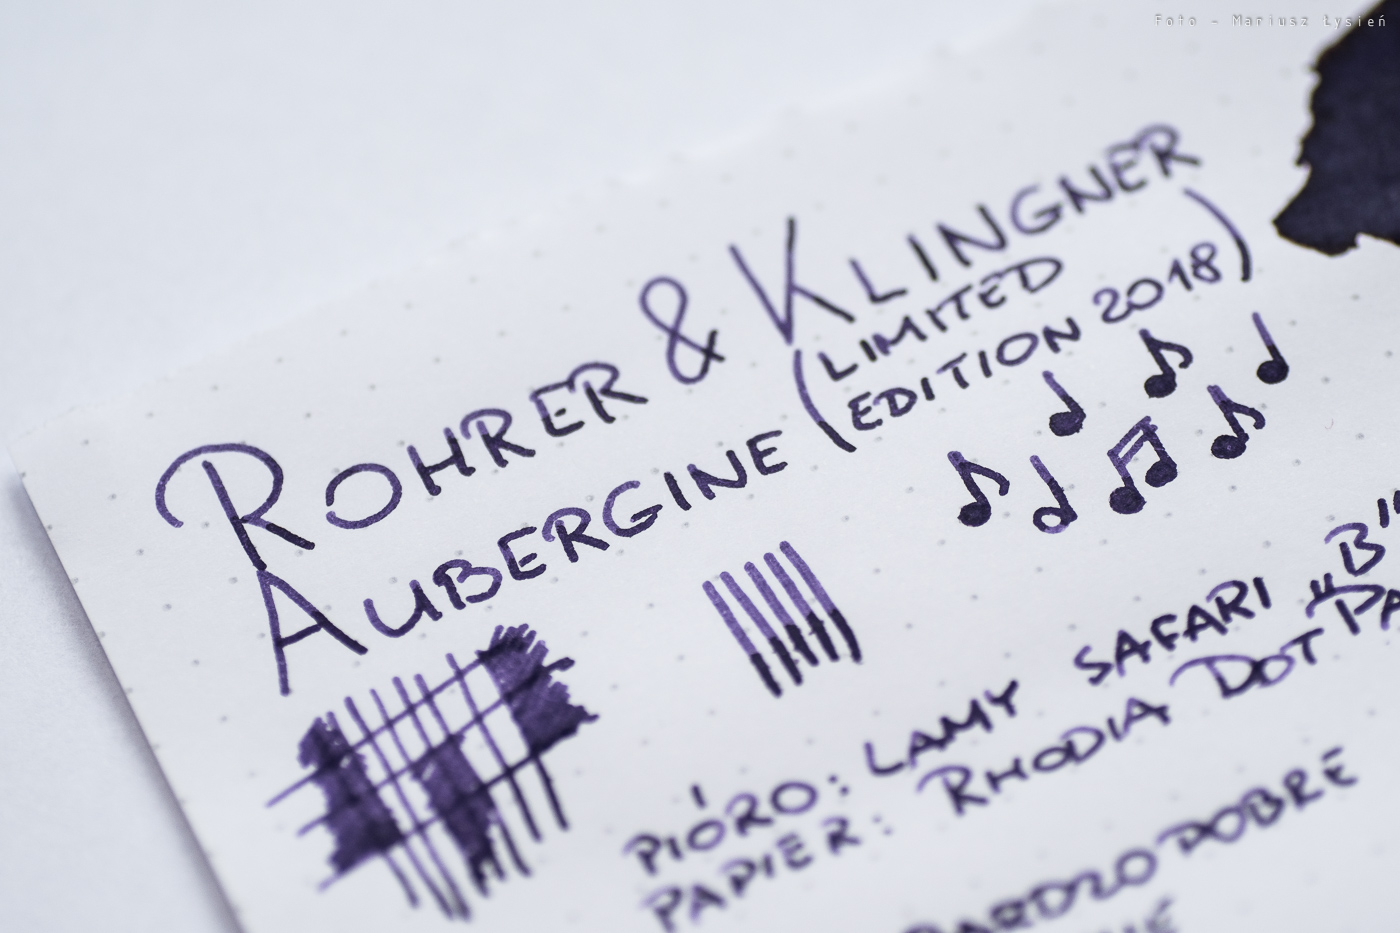 Foto - Mariusz Łysień
ROHRER & KLINGNER
AUBERGINE (LIMITED
EDITION 2018)
PIÓRO: LAMY SAFARI „B"
PAPIER: RHODIA DOT
BARDZO DOBRE